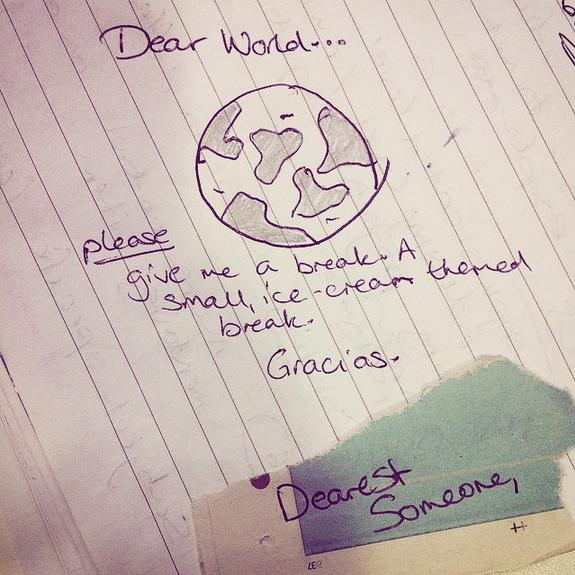 Dear World...
please
give me a break. A
small, ice-cream themed
break.
Gracias.
Dearest
Someone,